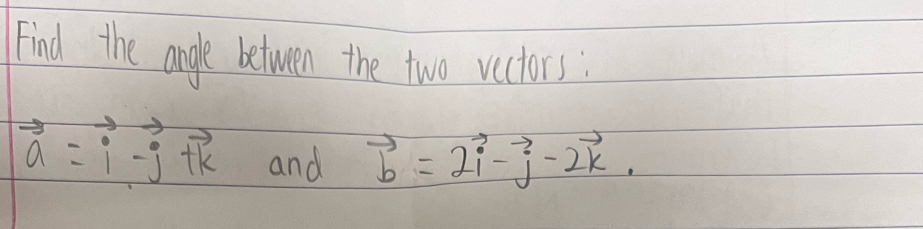 Find the angle between the two vectors:
$\vec{a} = \vec{i} - \vec{j} + \vec{k}$ and $\vec{b} = 2\vec{i} - \vec{j} - 2\vec{k}$.